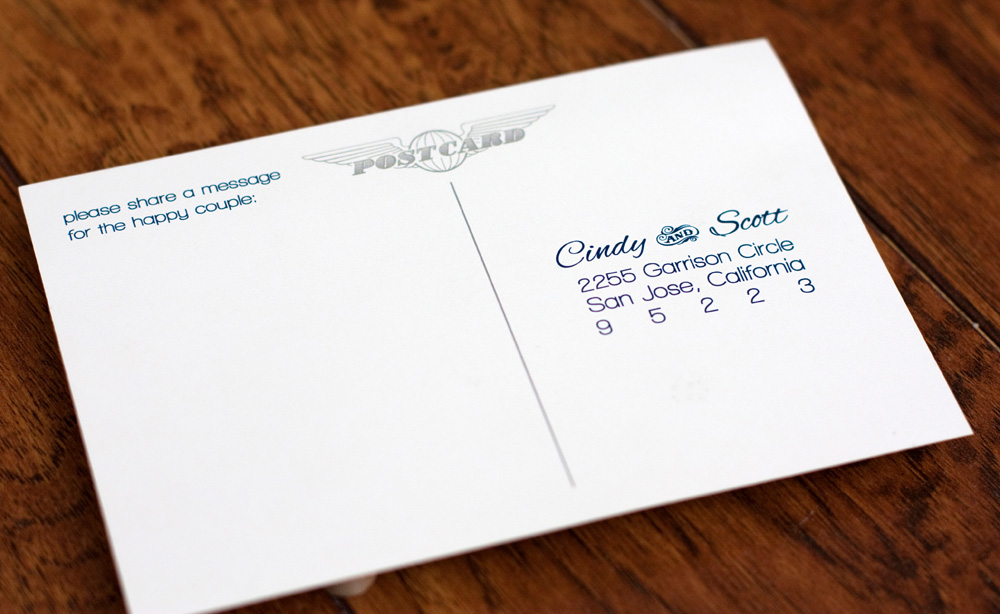 POSTCARD
please share a message
for the happy couple:
Cindy AND Scott
2255 Garrison Circle
San Jose, California
9 5 2 2 3